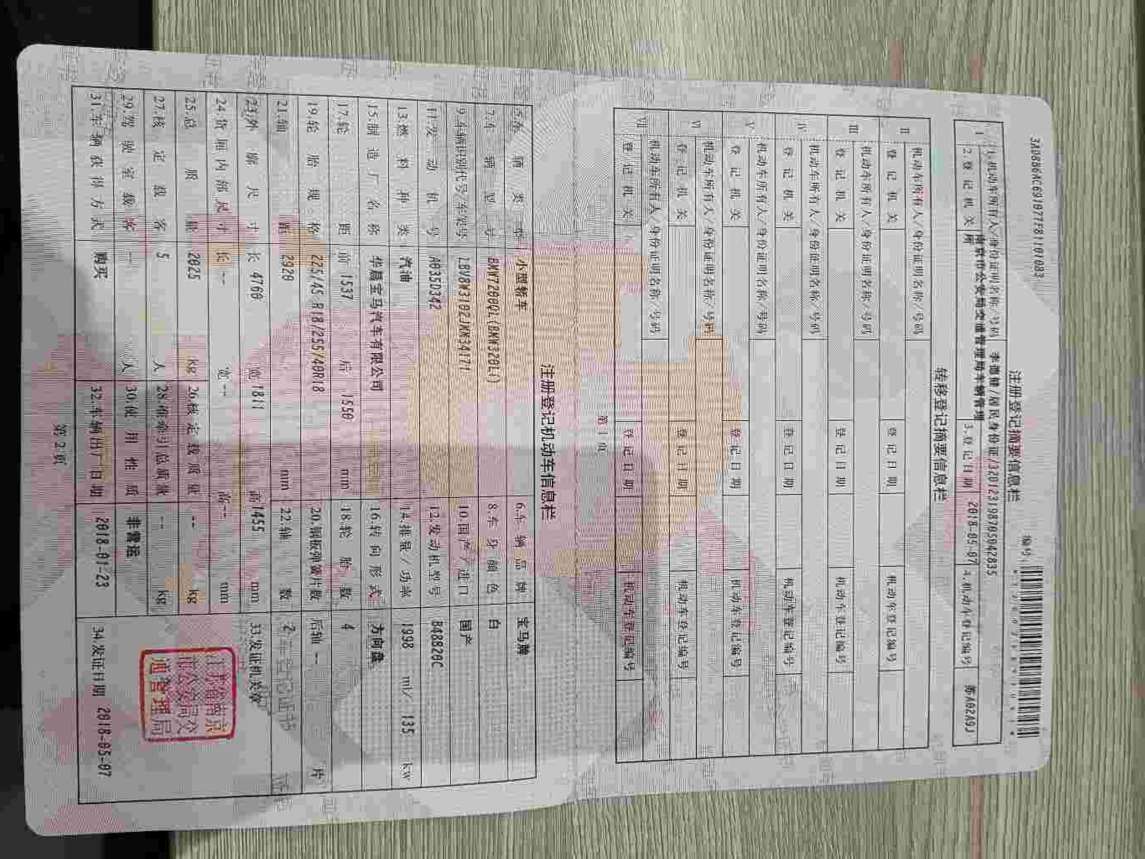 注册登记摘要信息栏
编号
1.机动车所有人/身份证明名称/号码 李德健/居民身份证/320123198705042835
2.登记机关 南京市公安局交通管理局车辆管理所 3.登记日期 2018-05-07 4.机动车登记编号 苏A02A9J
转移登记摘要信息栏
II 机动车所有人/身份证明名称/号码
登记机关 登记日期 机动车登记编号
III 机动车所有人/身份证明名称/号码
登记机关 登记日期 机动车登记编号
IV 机动车所有人/身份证明名称/号码
登记机关 登记日期 机动车登记编号
V 机动车所有人/身份证明名称/号码
登记机关 登记日期 机动车登记编号
VI 机动车所有人/身份证明名称/号码
登记机关 登记日期 机动车登记编号
VII 机动车所有人/身份证明名称/号码
登记机关 登记日期 机动车登记编号
第1页
注册登记机动车信息栏
5.车辆类型 小型轿车 6.车辆品牌 宝马牌
7.车辆型号 BMW7200QL(BMW320Li) 8.车身颜色 白
9.车辆识别代号/车架号 LBV8W3102JMN34171 10.国产/进口 国产
11.发动机号 A035D342 12.发动机型号 B48B20C
13.燃料种类 汽油 14.排量/功率 1998 ml/ 135 kw
15.制造厂名称 华晨宝马汽车有限公司 16.转向形式 方向盘
17.轮距 前 1537 后 1550 mm 18.轮胎数 4
19.轮胎规格 225/45 R18/255/40R18 20.钢板弹簧片数 后轴 -- 片
21.轴距 2920 mm 22.轴数 2
23.外廓尺寸 长 4760 宽 1811 高 1455 mm 33.发证机关章
24.货厢内部尺寸 长 -- 宽 -- 高 -- mm
25.总质量 2025 kg 26.核定载质量 -- kg
27.核定载客 5 人 28.准牵引总质量 -- kg
29.驾驶室载客 -- 人 30.使用性质 非营运
江苏省南京市公安局交通管理局
31.车辆获得方式 购买 32.车辆出厂日期 2018-01-23 34.发证日期 2018-05-07
第2页